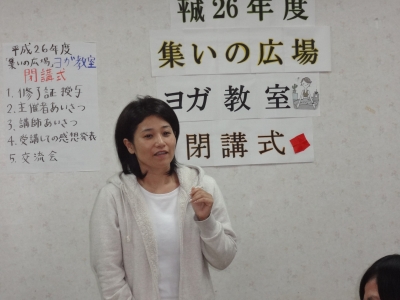 平成26年度
「集いの広場」ヨガ教室
閉講式
1. 修了証授与
2. 主催者あいさつ
3. 講師あいさつ
4. 受講しての感想発表
5. 交流会
平成26年度
集いの広場
ヨガ教室
閉講式